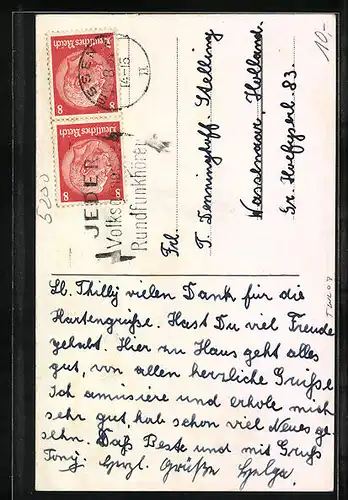 10,-
5200
Deutsches Reich
8 8
Deutsches Reich
8 8
ESSEN
14-15
JEDER
Volks
Rundfunkhörer
Frl.
T. Denninghoff-Stelling
Wassenaar, Holland.
Gr. Hoefyzerl. 83.
Lb. Thilly vielen Dank für die
Kartengrüße. Hast Du viel Freude
gehabt. Hier zu Haus geht alles
gut, von allen herzliche Grüße
Ich amüsiere und erhole mich
sehr gut, hab schon viel Neues ge-
sehn. Das Beste und mit Gruß
Tony. Herzl. Grüße Helga.